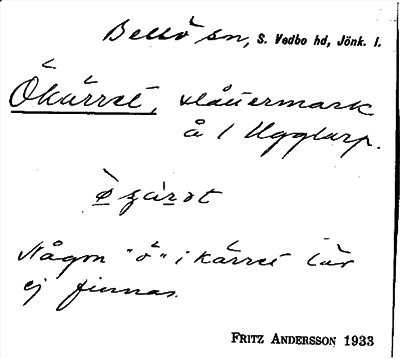 Bellö sn, S. Vedbo hd, Jönk. l.
Ökärret, slåttermark
å 1 Ugglarp.
Någon "ö" i kärret lär
ej finnas.
FRITZ ANDERSSON 1933